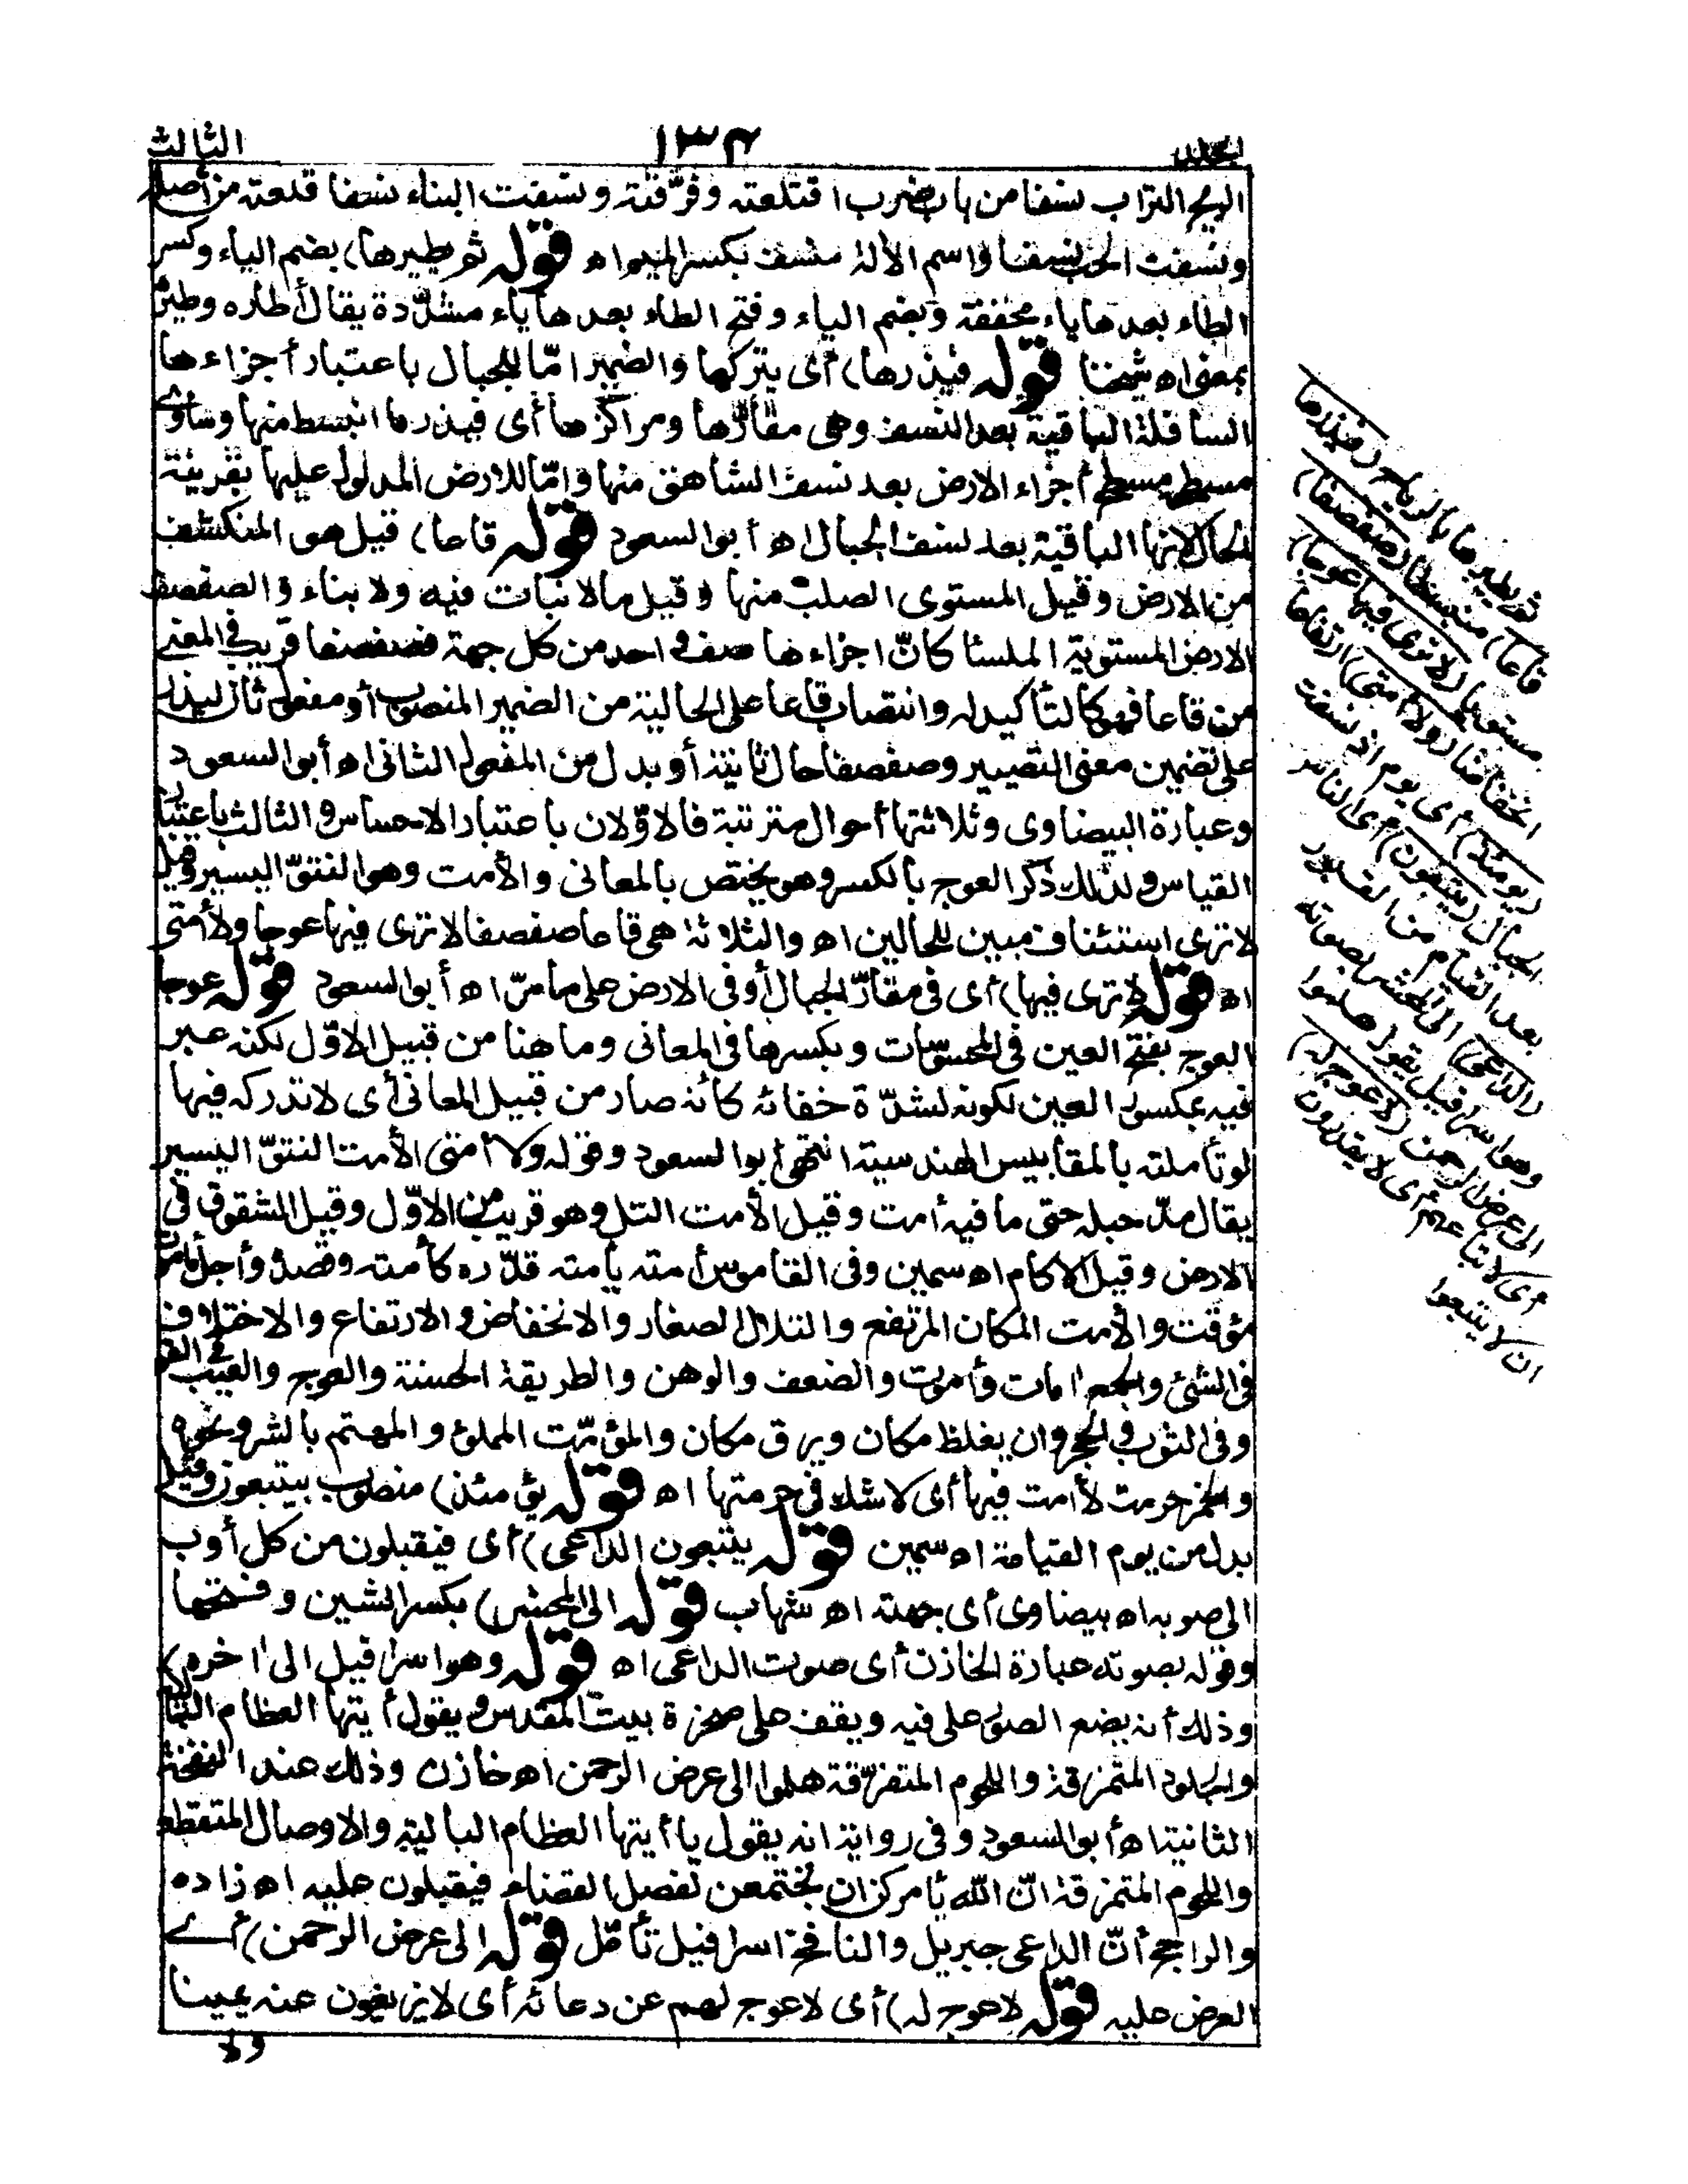 المجلد ١٣٤ الثالث
الريح التراب نسفا من باب ضرب اقتلعته وفرّقته ونسفت البناء نسفا قلعته من أصله
ونسفت الحب نسفا واسم الآلة منسف بكسر الميم اه قوله ثم يطيرها) بضم الياء وكسر
الطاء بعدها ياء مخففة وبضم الياء وفتح الطاء بعدها ياء مشدّدة يقال أطاره وطيره
بمعنى اه شيخنا قوله فيذرها) أى يتركها والضمير امّا للجبال باعتبار أجزاءها
السافلة الباقية بعد النسف وهى مقارّها ومراكزها أى فيذر ما انبسط منها وساوى
مسطحه مسطح أجزاء الارض بعد نسف الشاهق منها وامّا للارض المدلول عليها بقرينة
الحال لانها الباقية بعد نسف الجبال اه أبو السعود قوله قاعا) قيل هى المنكشف
من الارض وقيل المستوى الصلب منها وقيل مالا نبات فيه ولا بناء والصفصف
الارض المستوية الملسئا كانّ اجزاءها صف واحد من كل جهة فصفصفا قريب فى المعنى
من قاعا فهو كالتأكيد له وانتصاب قاعا على الحالية من الضمير المنصوب أو مفعول ثان ليذر
على تضمين معنى التصيير وصفصفا حال ثانية أو بدل من المفعول الثانى اه أبو السعود
وعبارة البيضاوى وثلاثتها أحوال مترتبة فالاوّلان باعتبار الاحساس والثالث باعتبار
القياس ولذلك ذكر العوج بالكسر وهو يختص بالمعانى والأمت وهو النتوّ اليسير وقيل
لا ترى استئناف مبين للحالين اه والثلاثة هى قاعا صفصفا لا ترى فيها عوجا ولا أمتى
اه قوله لا ترى فيها) أى فى مقارّ الجبال أو فى الارض على ما مرّ اه أبو السعود قوله عوجا
العوج بفتح العين فى المحسوسات وبكسرها فى المعانى وما هنا من قبيل الاوّل لكنه عبر
فيه بمكسور العين لكونه لشدّة خفائه كأنه صار من قبيل المعانى أى لا تدركه فيها
لو تأملته بالمقاييس الهندسية انتهى أبو السعود وقوله ولا أمتى الأمت النتوّ اليسير
يقال مدّ حبله حتى ما فيه أمت وقيل الأمت التل وهو قريب من الاوّل وقيل الشقوق فى
الارض وقيل الاكام اه سمين وفى القاموس أمته يأمته قدّره كأمته وقصده وأجل مأموت
مؤقت والأمت المكان المرتفع والتلال الصغار والانخفاض والارتفاع والاختلاف
فى الشئ والجمع امات وأموت والضعف والوهن والطريقة الحسنة والعوج والعيب فى الفم
وفى الثوب والحجر وان يغلظ مكان ويرق مكان والمؤمّت المملؤ والمهتم بالشر ونحوه
والخمر حرمت لا أمت فيها أى لا شك فى حرمتها اه قوله يومئذ) منصوب بيتبعون وقيل
بدل من يوم القيامة اه سمين قوله يتبعون الداعى) أى فيقبلون من كل أوب
الى صوبه اه بيضاوى أى جهته اه شهاب قوله الى المحشر) بكسر الشين وفتحها
وقوله بصوته عبارة الخازن أى صوت الداعى اه قوله وهو اسرافيل الى اخره)
وذلك أنه يضع الصور على فيه ويقف على صخرة بيت المقدس ويقول أيتها العظام البالية
والجلود المتمزقة واللحوم المتفرّقة هلموا الى عرض الرحمن اه خازن وذلك عند النفخة
الثانية اه أبو السعود وفى رواية انه يقول يا أيتها العظام البالية والاوصال المتقطعة
واللحوم المتمزقة انّ الله يأمركن ان تجتمعن لفصل القضاء فيقبلون عليه اه زاده
والراجح أنّ الداعى جبريل والنافخ اسرافيل تأمّل قوله الى عرض الرحمن) أى
العرض عليه قوله لا عوج له) أى لا عوج لهم عن دعائه أى لا يزيغون عنه يمينا
ولا
ثم يطيرها بالرياح (فيذرها
قاعا) منبسطا (صفصفا)
مستويا (لا ترى فيها عوجا)
انخفاضا (ولا أمتى) ارتفاعا
(يومئذ) أى يوم اذ نسفت
الجبال (يتبعون) أى الناس
بعد القيام من القبور
(الداعى) الى المحشر بصوته
وهو اسرافيل يقول هلموا
الى عرض الرحمن (لا عوج له)
أى لاتباعهم أى لا يقدرون
ان لا يتبعوا